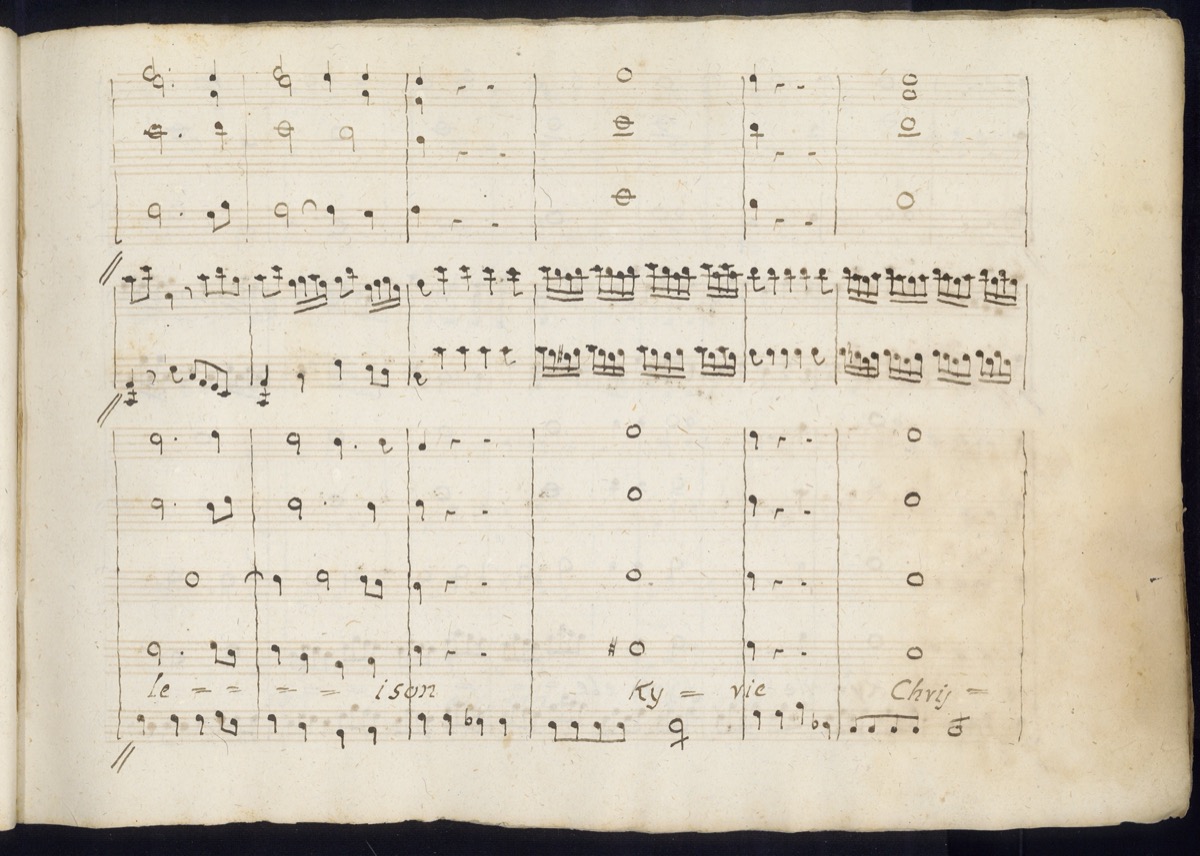 le = = = = ison Ky = rie Chris =